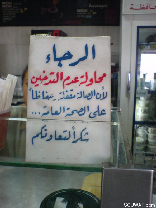 الرجاء
محاولة عدم التدخين
لأن الصالة مقفلة.. حفاظاً
على الصحة العامة...
شكراً لتعاونكم
محافظة